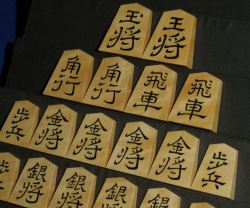 玉将 王将
角行 角行 飛車 飛車
歩兵 金将 金将 金将 金将 歩兵
歩 銀将 銀将 銀将 銀将